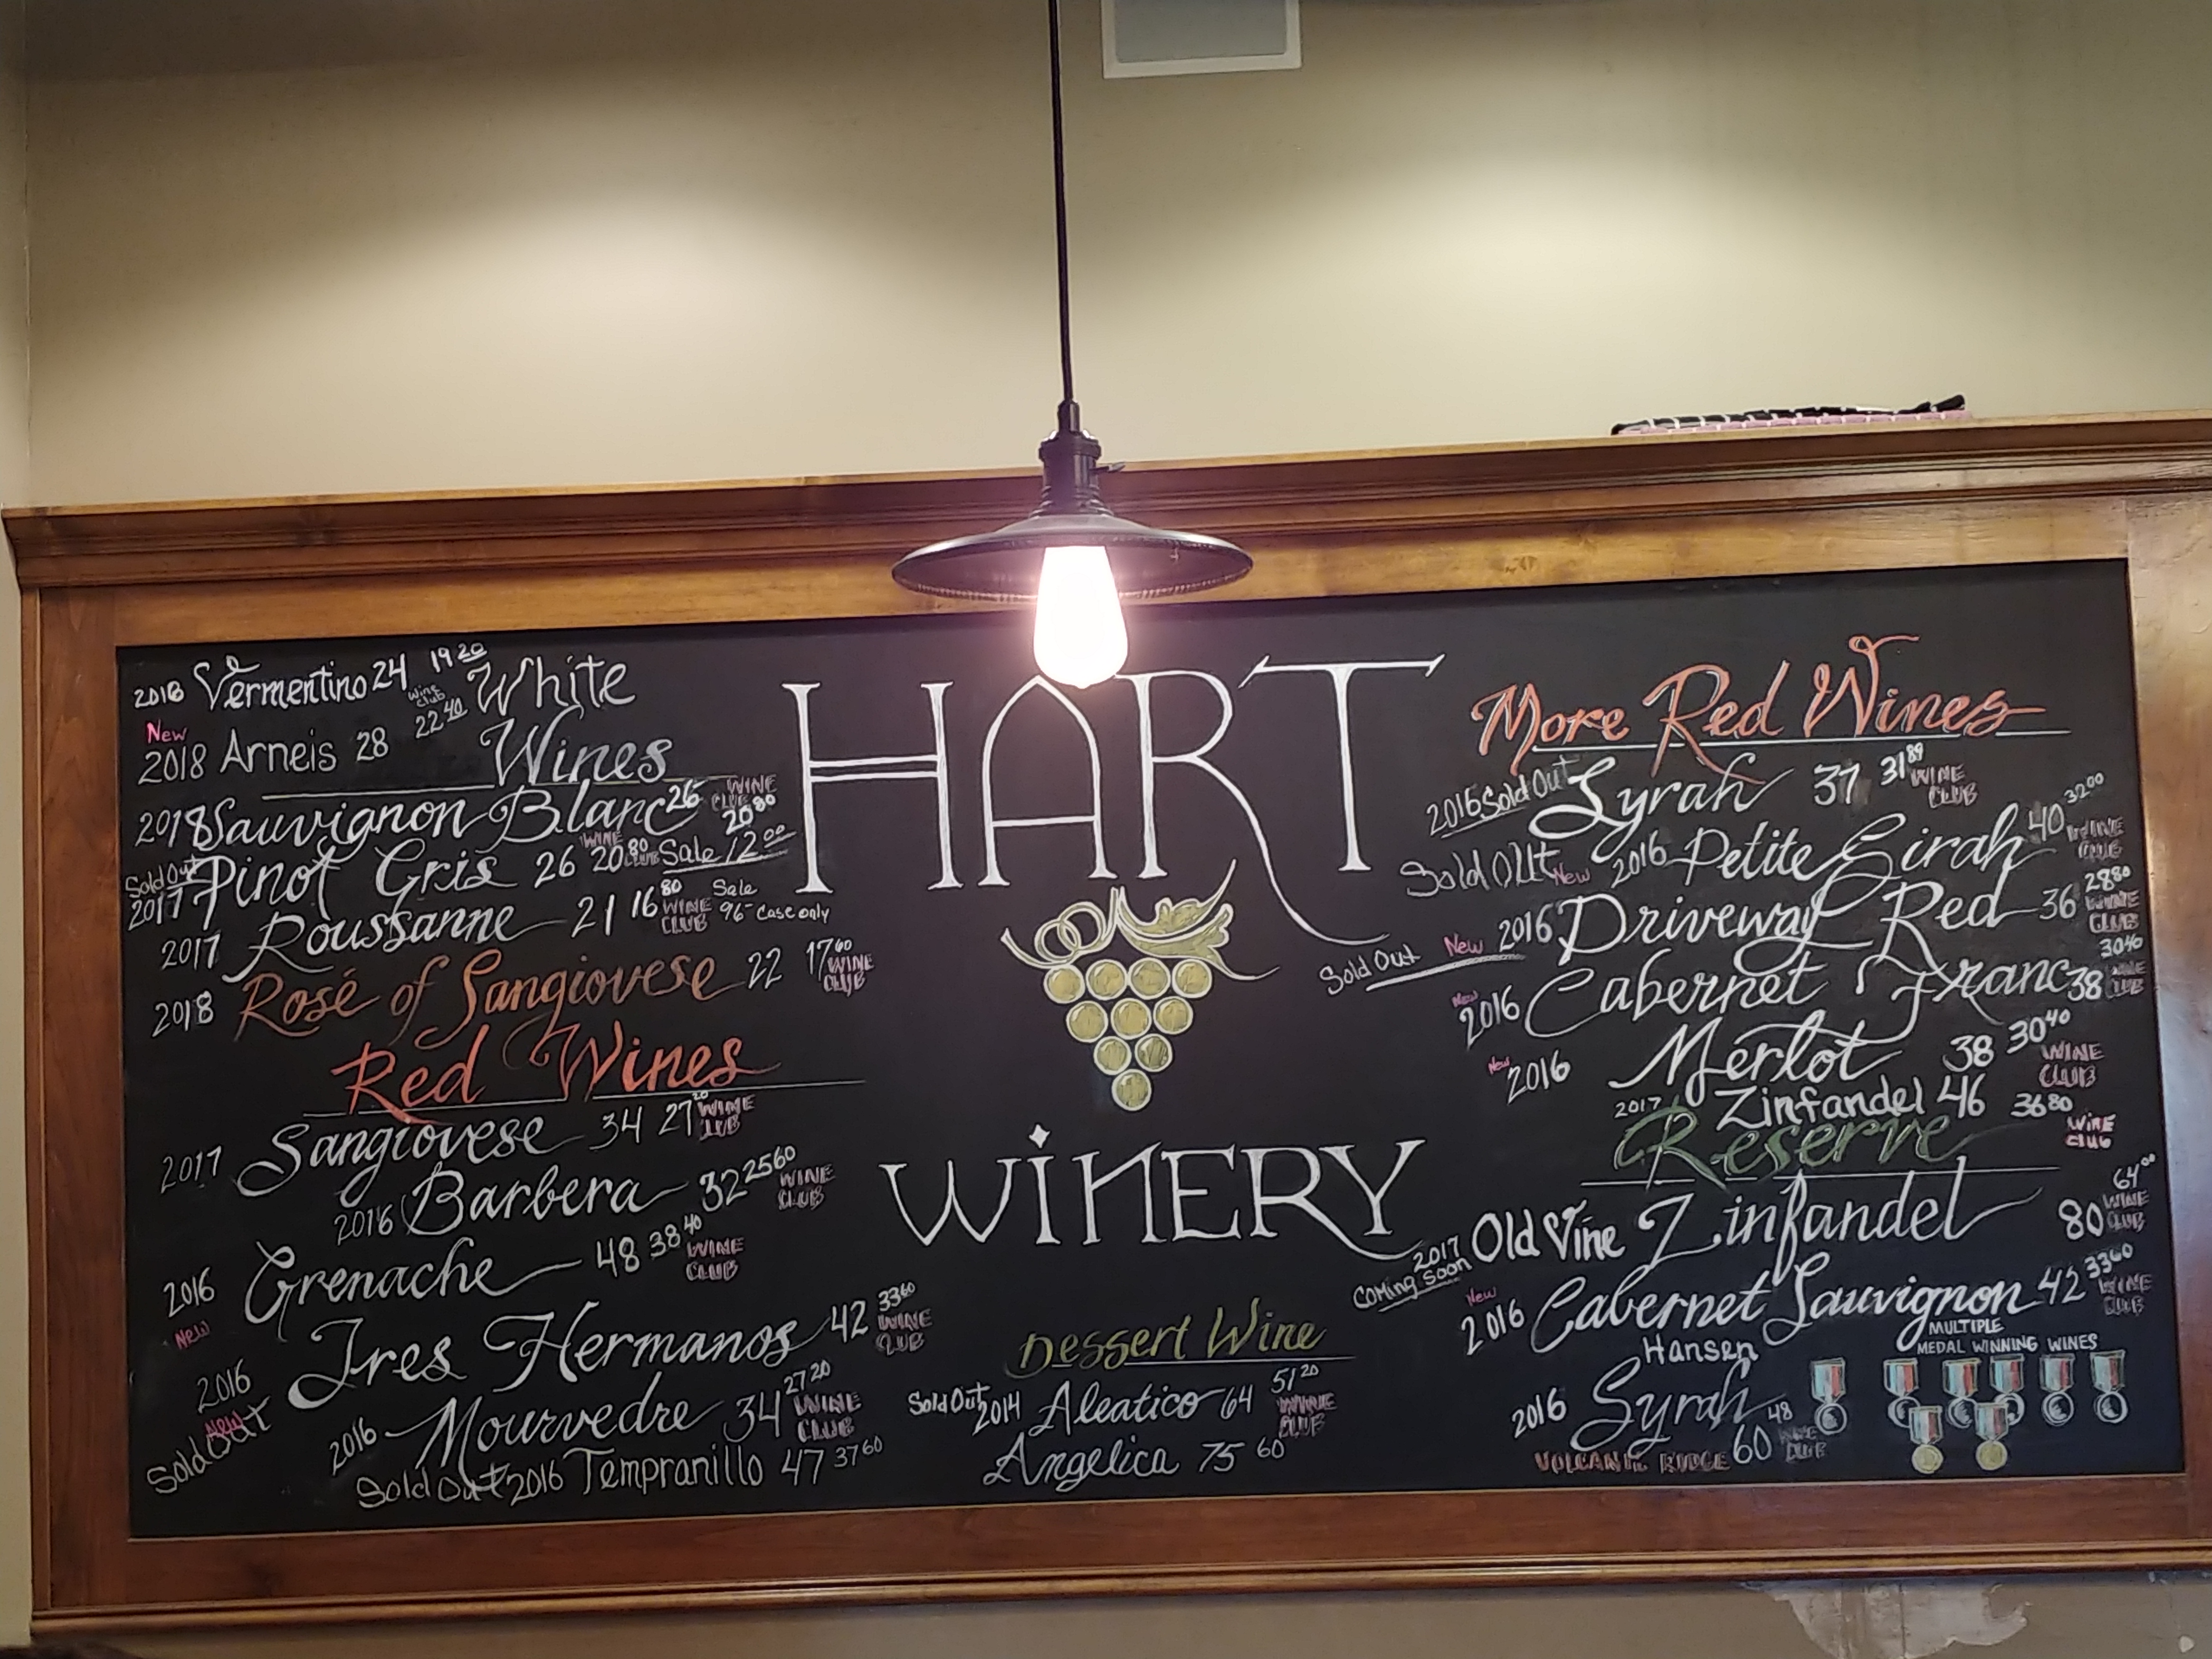 2018 Vermentino 24 19 20 White
New Wine Club 22 40
2018 Arneis 28 Wines
2018 Sauvignon Blanc 26 WINE CLUB 20 80
Sold Out 2017 Pinot Gris 26 20 80 WINE CLUB Sale 12 00
2017 Roussanne 21 16 80 WINE CLUB Sale 96- Case only
2018 Rosé of Sangiovese 22 17 60 WINE CLUB
Red Wines
2017 Sangiovese 34 27 20 WINE CLUB
2016 Barbera 32 25 60 WINE CLUB
2016 Grenache 48 38 40 WINE CLUB
New
2016 Tres Hermanos 42 33 60 WINE CLUB
New
Sold Out
2016 Mourvedre 34 27 20 WINE CLUB
Sold Out 2016 Tempranillo 47 37 60
HART
WINERY
Dessert Wine
Sold Out 2014 Aleatico 64 51 20 WINE CLUB
Angelica 75 60
More Red Wines
2016 Sold Out Syrah 37 31 89 WINE CLUB
Sold Out New 2016 Petite Sirah 40 32 00 WINE CLUB
Sold Out New 2016 Driveway Red 36 28 80 WINE CLUB
New 2016 Cabernet Franc 38 30 40 WINE CLUB
New 2016 Merlot 38 30 40 WINE CLUB
2017 Zinfandel 46 36 80 Wine Club
Reserve
2017 Coming Soon Old Vine Zinfandel 80 64 00 WINE CLUB
New 2016 Cabernet Sauvignon 42 33 60 WINE CLUB
Hansen
2016 Syrah 60 48 WINE CLUB
VOLCANIC RIDGE
MULTIPLE
MEDAL WINNING WINES